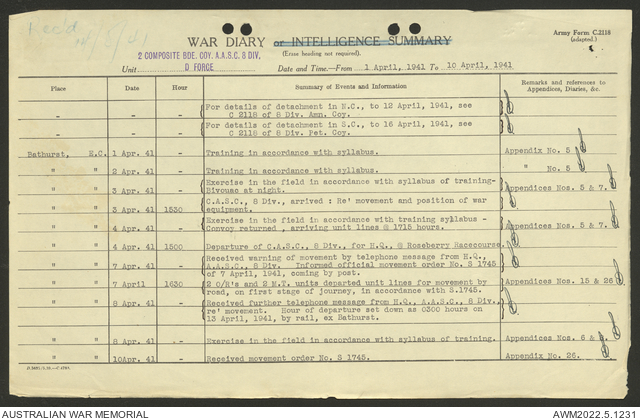 Rec'd
/5/41
WAR DIARY or INTELLIGENCE SUMMARY
(Erase heading not required).
Army Form C.2118
(adapted.)
2 COMPOSITE BDE. COY. A.A.S.C. 8 DIV,
Unit D FORCE Date and Time.—From 1 April, 1941 To 10 April, 1941
Place Date Hour Summary of Events and Information Remarks and references to Appendices, Diaries, &c.
- - For details of detachment in N.C., to 12 April, 1941, see
C 2118 of 8 Div. Amn. Coy.
- - For details of detachment in S.C., to 16 April, 1941, see
C 2118 of 8 Div. Pet. Coy.
Bathurst, E.C. 1 Apr. 41 - Training in accordance with syllabus. Appendix No. 5
" " 2 Apr. 41 - Training in accordance with syllabus. " No. 5
" " 3 Apr. 41 - Exercise in the field in accordance with syllabus of training- Appendices Nos. 5 & 7.
Bivouac at night.
" " 3 Apr. 41 1530 C.A.S.C., 8 Div., arrived : Re' movement and position of war
equipment.
" " 4 Apr. 41 - Exercise in the field in accordance with training syllabus - Appendices Nos. 5 & 7.
Convoy returned , arriving unit lines @ 1715 hours.
" " 4 Apr. 41 1500 Departure of C.A.S.C., 8 Div., for H.Q., @ Roseberry Racecourse.
" " 7 Apr. 41 - Received warning of movement by telephone message from H.Q.,
A.A.S.C., 8 Div. Informed official movement order No. S 1745
of 7 April, 1941, coming by post.
" " 7 April 1630 2 O/R's and 2 M.T. units departed unit lines for movement by Appendices Nos. 15 & 26
road, on first stage of journey, in accordance with S.1745.
" " 8 Apr. 41 - Received further telephone message from H.Q., A.A.S.C., 8 Div.,
re' movement. Hour of departure set down as 0300 hours on
13 April, 1941, by rail, ex Bathurst.
" " 8 Apr. 41 - Exercise in the field in accordance with syllabus of training. Appendices Nos. 6 &
" " 10Apr. 41 - Received movement order No. S 1745. Appendix No. 26.
AUSTRALIAN WAR MEMORIAL AWM2022.5.1231